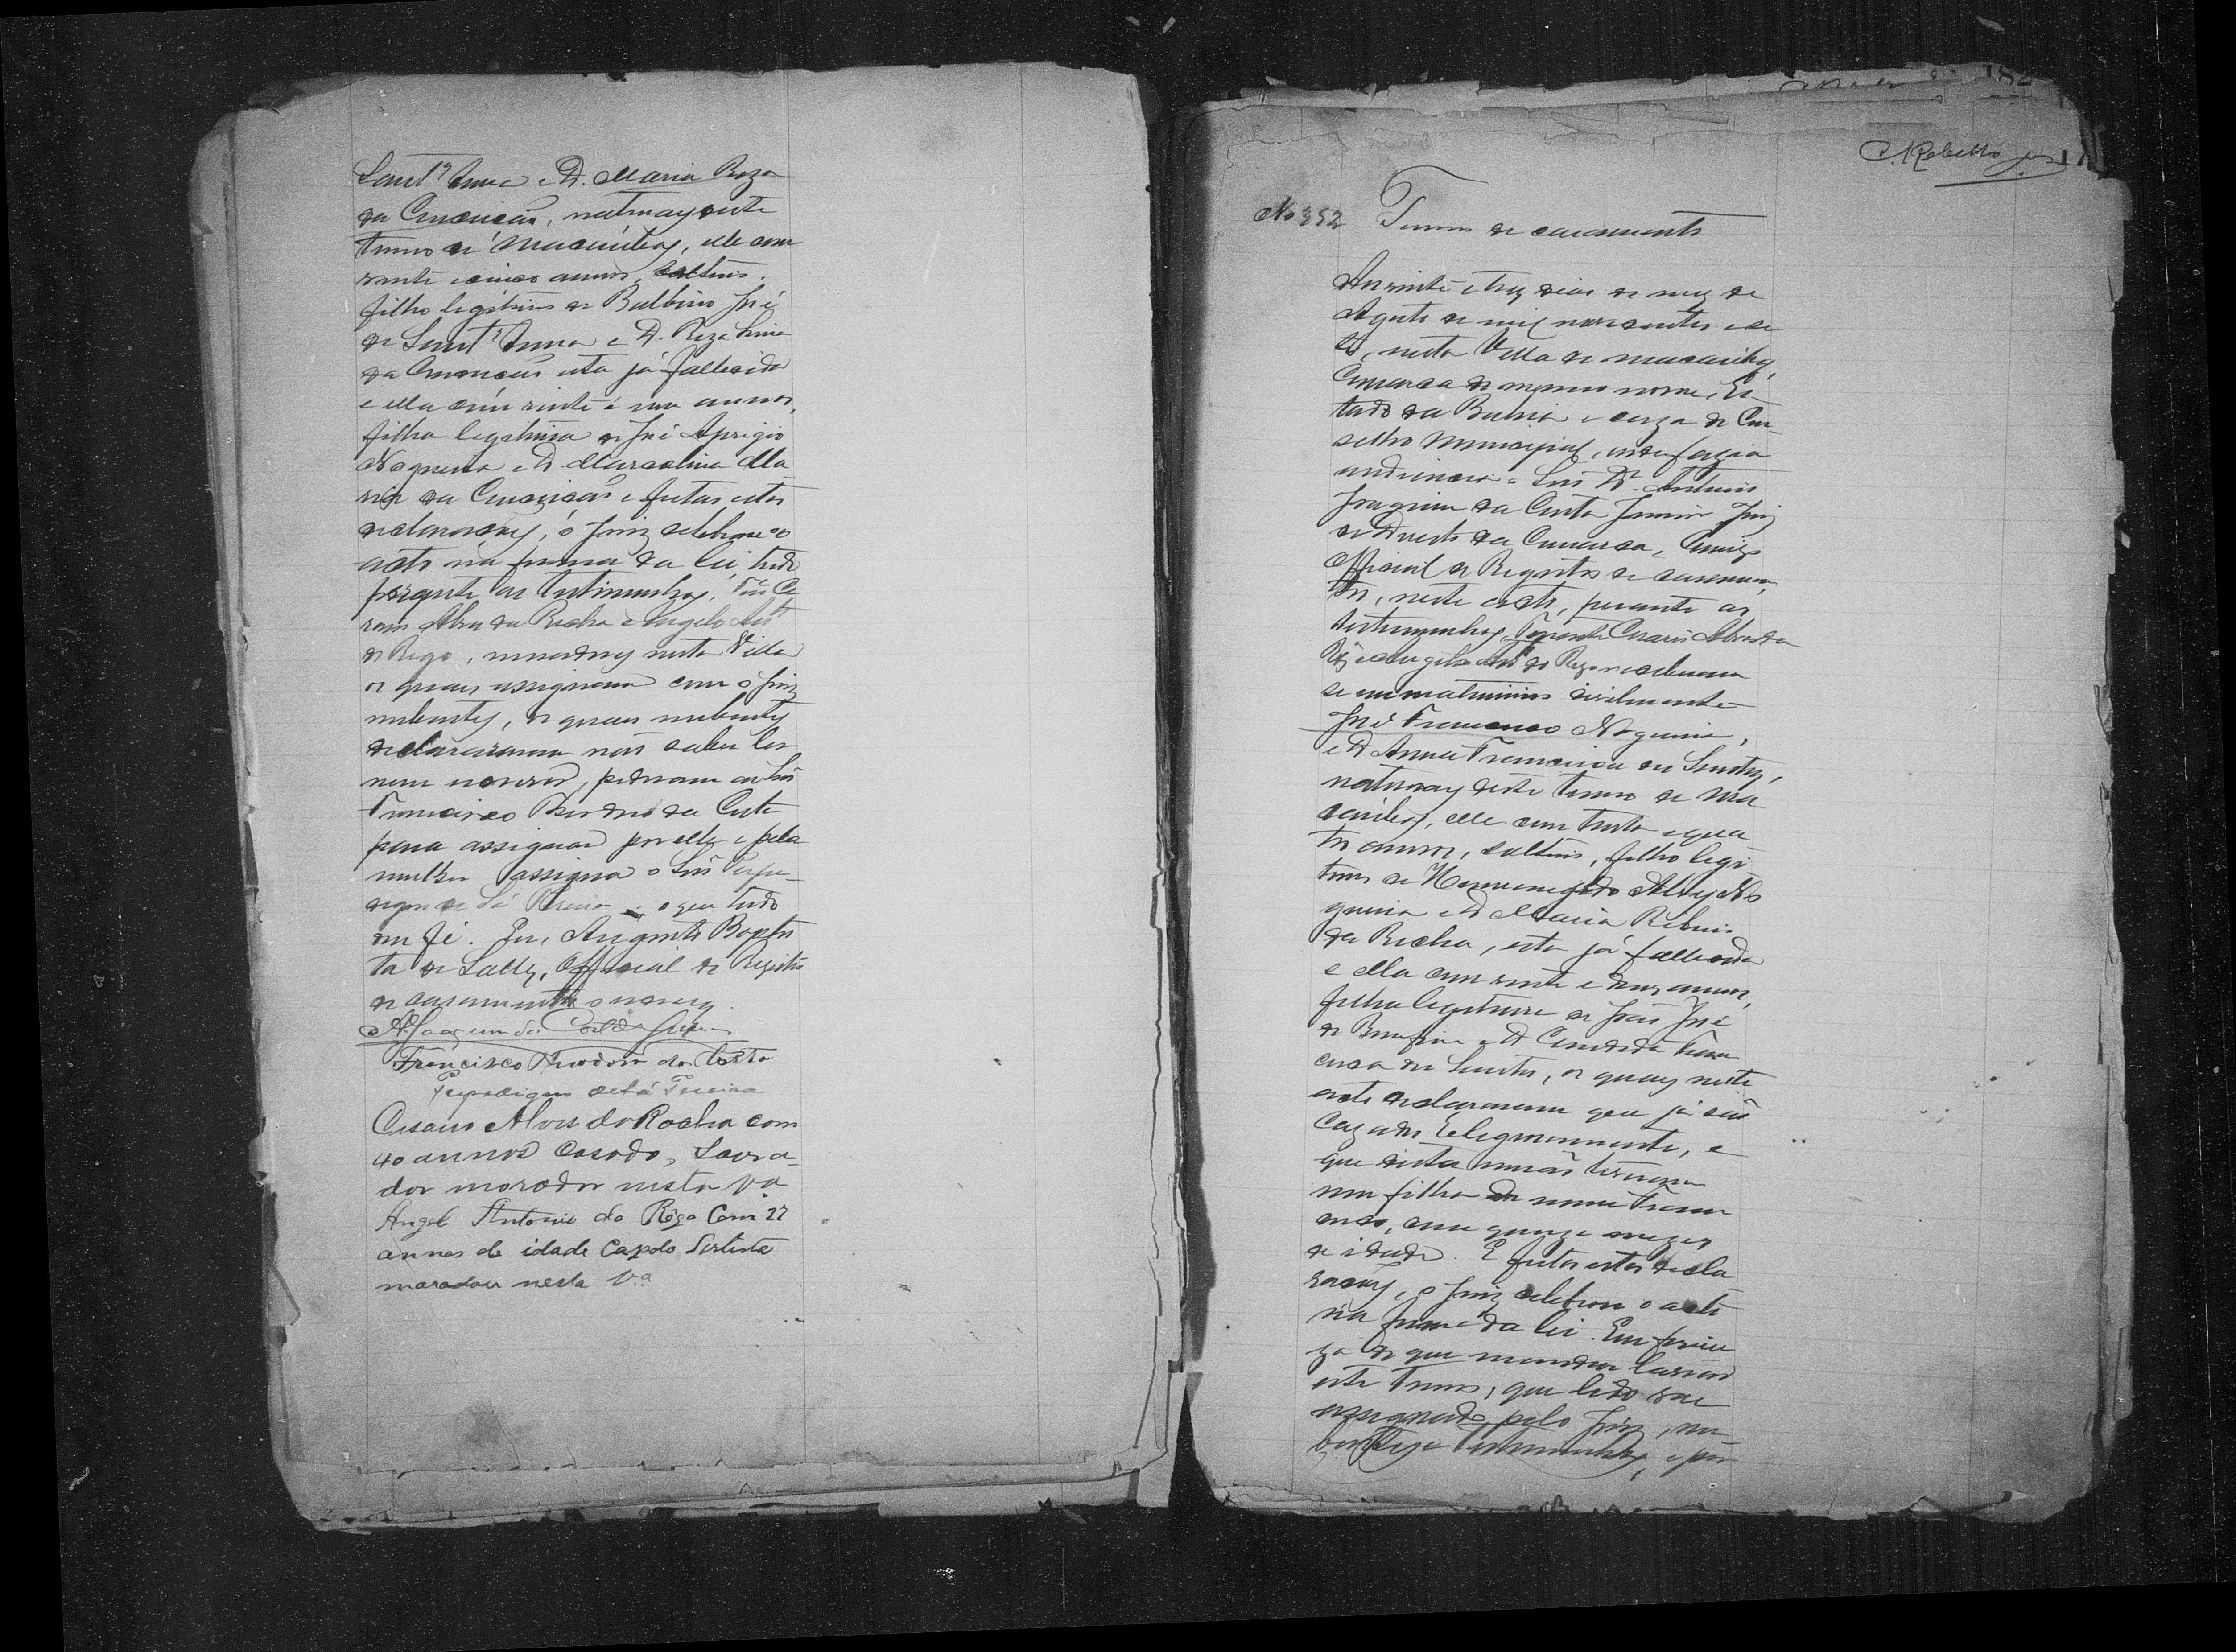 Sant'Anna e D. Maria Roza
da Conceição, naturaes deste
termo de Macaúbas, elle com
vinte e cinco annos, solteiro,
filho legitimo de Balbino José
de Sant'Anna e D. Roza Lima
da Conceição esta já fallecida
e ella com vinte e um annos,
filha legitima de José Aprigio
Nogueira e D. Marcolina Ma
ria da Conceição e feitas estas
declarações, o Juiz celebrou o
acto na forma da lei, tudo
perante as testimunhas, Ten Ce
sario Alves da Rocha e Angelo Ant
do Rego, moradores nesta Villa
os quaes assignam com o Juiz
nubentes, os quaes nubentes
declararam não saber ler
nem escrever, pediram ao Snr
Francisco Theodoro da Costa
para assignar por elle e pela
mulher assigna o Snr
de Sá Pereira o que tudo
dou fé. Eu, Augusto Baptis
ta de Salles, Official do Registro
de casamentos o escrevy.
A. Joaquim da Costa Junior
Francisco Theodoro da Costa
de Sá Pereira
Cesario Alves da Rocha com
40 annos Casado, Lavra-
dor morador nesta Va
Angel Antonio do Rêgo Com 27
annos de idade Cazado Artista
morador nesta Va
182
C. Rebello
No 352 Termo de casamento
Aos vinte e tres dias do mez de
Agosto de mil novecentos e se
te, nesta Villa de Macaúbas,
Comarca do mesmo nome, Es-
tado da Bahia e caza do Con-
selho Municipal, onde fazia
audiencia o Snr Dr. Antonio
Joaquim da Costa Junior Juiz
de Direito da Comarca, Comigo
Official do Registro de casamen
tos, neste acto, perante as
testemunhas, Tenente Cesario Alves da
Rª e Angelo Antº do Rego receberam
se em matrimonio civilmente
José Francisco Nogueira,
e D Anna Francisca dos Santos,
naturaes deste termo de Ma
caúbas, elle com trinta e qua
tro annos, solteiro, filho legi
timo de Hermenegildo Alves No
gueira e D Maria
da Rocha, esta já fallecida
e ella com vinte e annos,
filha legitima de João José
do Bomfim e D Candida
dos Santos, os quaes neste
acto declararam que já são
Cazados Religiosamente, e
que desta união tiveram
um filho de nome Fran
cisco, com quinze mezes
de idade. E feitas estas decla
rações, o Juiz celebrou o acto
na forma da lei. Em firme
za do que mandou lavrar
este termo, que lido vae
assignado pelo Juiz, nu
bentes e Testemunhas, e por